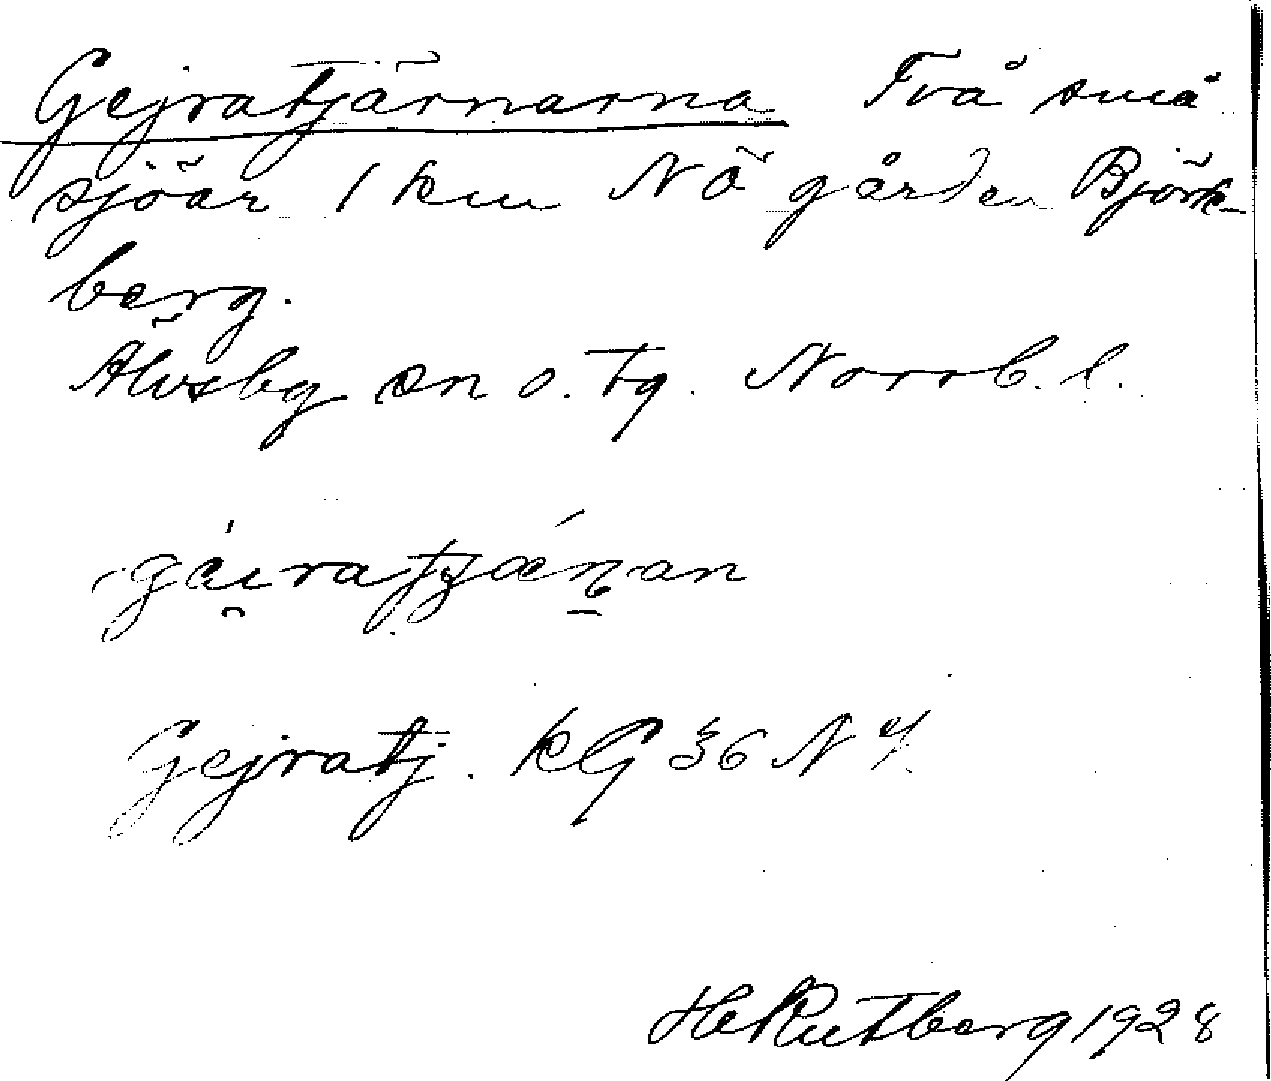 Gejratjärnarna Två små
sjöar 1 km NÖ gården Björk-
berg.
Älvsby sn o. tg. Norrb. l.
Gejratj. kG 36 N
H Rutberg 1928